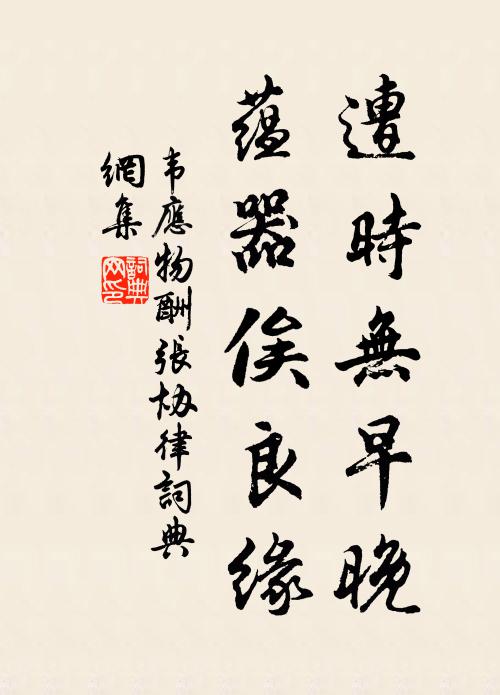 遭時無早晚
蘊器俟良緣
韦應物酬張协律詞典
網集
詞典
网印